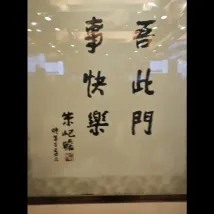 吾此門
事快樂
朱屺瞻